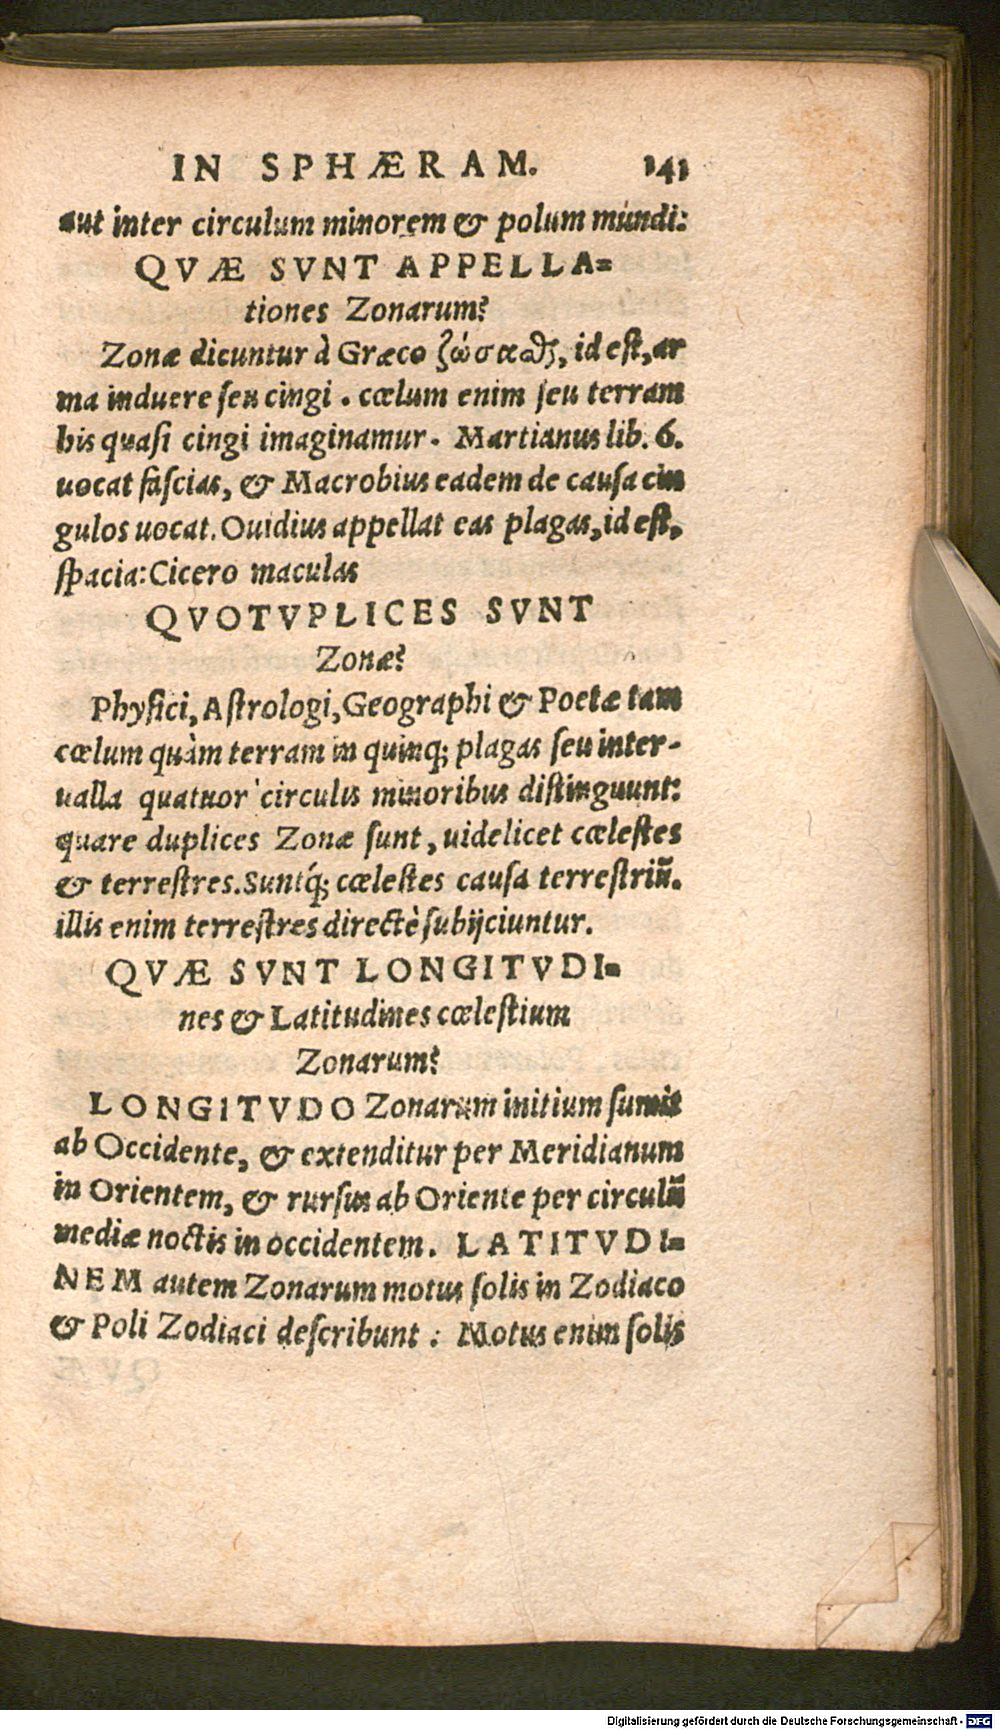 IN SPHÆRAM. 141
aut inter circulum minorem & polum mundi:
QVÆ SVNT APPELLA=
tiones Zonarum?
Zonæ dicuntur à Græco ζώσαϑαι, id eſt, ar
ma induere ſeu cingi. cœlum enim ſeu terram
his quaſi cingi imaginamur. Martianus lib. 6.
uocat faſcias, & Macrobius eadem de cauſa cin
gulos uocat. Ouidius appellat eas plagas, id eſt,
ſpacia: Cicero maculas
QVOTVPLICES SVNT
Zonæ?
Phyſici, Aſtrologi, Geographi & Poetæ tam
cœlum quàm terram in quinq; plagas ſeu inter-
ualla quatuor circulis minoribus diſtinguunt:
quare duplices Zonæ ſunt, uidelicet cœleſtes
& terreſtres. Suntq́; cœleſtes cauſa terreſtriū.
illis enim terreſtres directè ſubijciuntur.
QVÆ SVNT LONGITVDI=
nes & Latitudines cœleſtium
Zonarum?
LONGITVDO Zonarum initium ſumit
ab Occidente, & extenditur per Meridianum
in Orientem, & rurſus ab Oriente per circulū
mediæ noctis in occidentem. LATITVDI=
NEM autem Zonarum motus ſolis in Zodiaco
& Poli Zodiaci deſcribunt: Motus enim ſolis
Digitalisierung gefördert durch die Deutsche Forschungsgemeinschaft - DFG